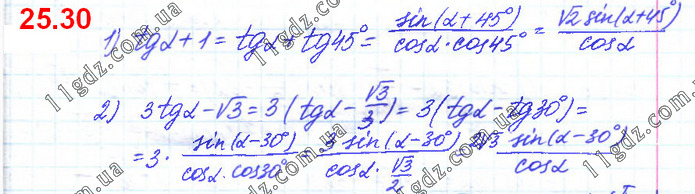 25.30
1) tgα + 1 = tgα + tg45° = sin(α + 45°) / cosα · cos45° = √2 sin(α + 45°) / cosα
2) 3tgα − √3 = 3(tgα − √3/3) = 3(tgα − tg30°) =
= 3 · sin(α − 30°) / cosα · cos30° = 3 sin(α − 30°) / cosα · √3/2 = 2√3 sin(α − 30°) / cosα
11gdz.com.ua
11gdz.com.ua
11gdz.com.ua
11gdz.com.ua